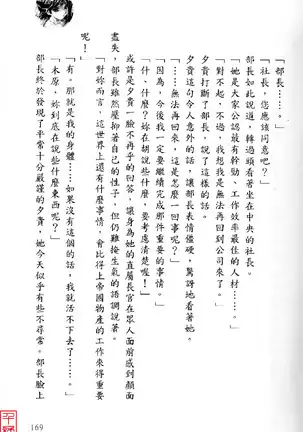 「部長……。」
「社長，您應該同意吧？」
部長如此說道，轉過頭看著坐在中央的社長。
「她是大家公認最有幹勁、工作效率最佳的人材……。」
「對不起，不過，我想我是無法再回到公司來了。」
夕貴打斷了部長，說了這樣的話。
夕貴這句令人意外的話，讓部長表情僵硬，驚訝地看著她。
「……無法再回來，這是怎麼一回事呢？」
「因為，今後我一定要繼續完成那件重要的事情。」
「什、什麼？妳在胡說些什麼，要考慮清楚喔！」
或許是夕貴一臉不再乎的回答，讓身為她的直屬長官在眾人面前感到顏面
盡失，部長雖然壓抑著自己的性子，但仍難掩生氣的語調說著。
「對妳而言，這世界上還有什麼事情，會比得上帝國物產的工作來得重要
呢？」
「有。那就是我的身體……如果沒有這個的話，我就活不下去了……。」
「木原，妳到底在說些什麼東西呢？」
部長終於發現了平常十分嚴謹的夕貴，她今天似乎有些不尋常。部長臉上
169